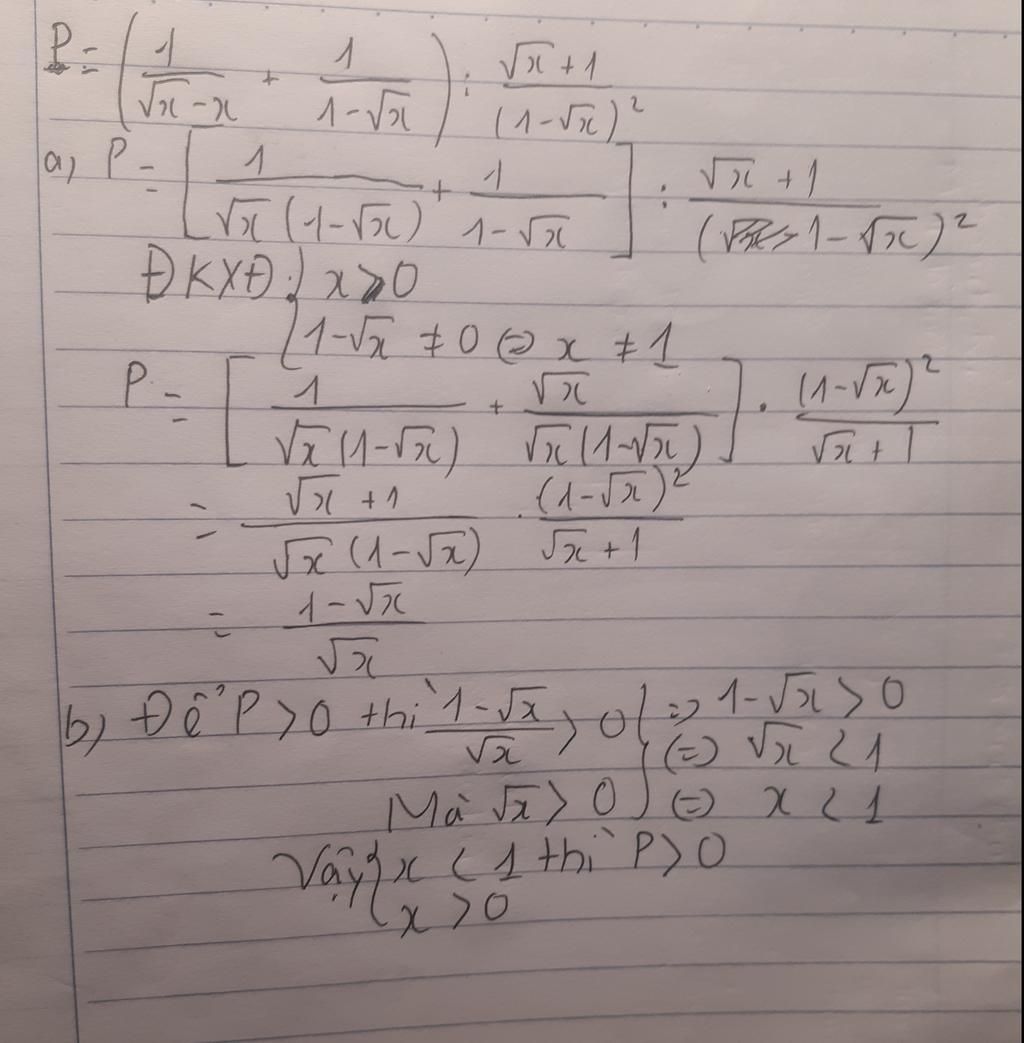 P = (1/(√x - x) + 1/(1-√x)) : (√x + 1)/(1-√x)²
a) P = [1/(√x(1-√x)) + 1/(1-√x)] : (√x + 1)/(1-√x)²
ĐKXĐ: { x > 0
{ 1-√x ≠ 0 ⇔ x ≠ 1
P = [1/(√x(1-√x)) + √x/(√x(1-√x))] . (1-√x)²/(√x + 1)
= (√x + 1)/(√x(1-√x)) . (1-√x)²/(√x + 1)
= (1-√x)/√x
b) Để P > 0 thì (1-√x)/√x > 0 } => 1-√x > 0
(=) √x < 1
Mà √x > 0 } (=) x < 1
Vậy { x < 1 thì P > 0
{ x > 0